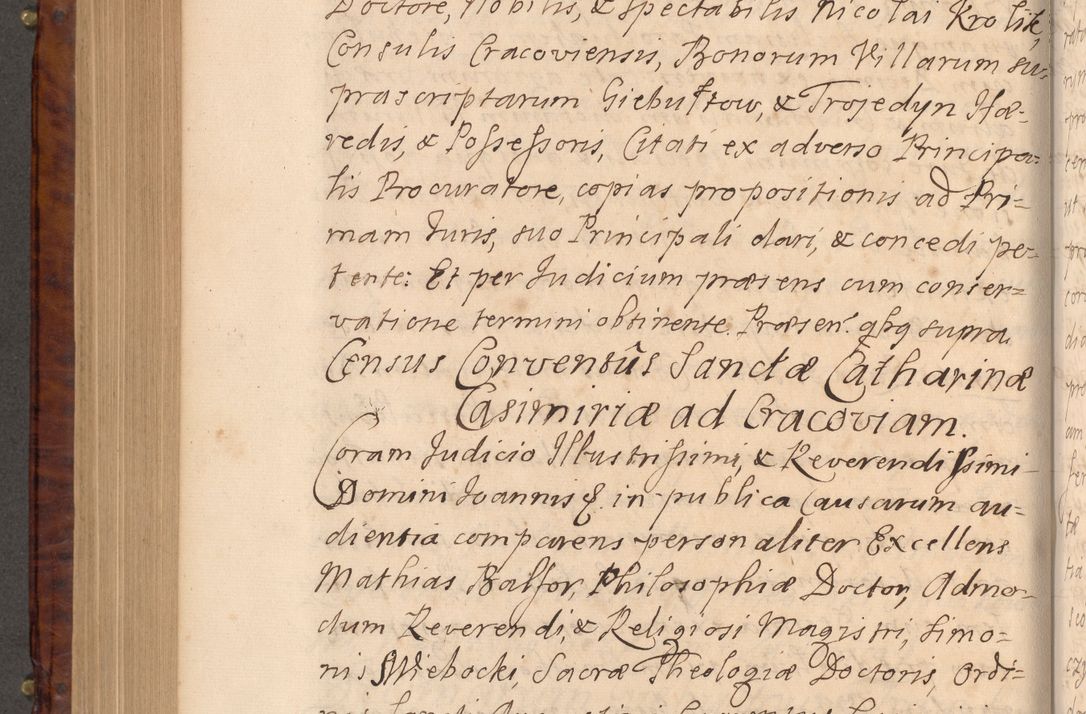 Doctore, Nobilis, & Spectabilis Nicolai Krolik,
Consulis Cracoviensis, Bonorum Villarum su-
prascriptarum Giebułtow, & Trojedyn Hæ-
redis, & Possessoris, Citati ex adverso Principa-
lis Procuratore, copias propositionis ad Pri-
mam Juris, suo Principali dari, & concedi pe-
tente: Et per Judicium præsens cum conser-
vatione termini obtinente. Præsen: qbq supra
Census Conventûs Sanctæ Catharinæ
Casimiriæ ad Cracoviam.
Coram Judicio Illustrissimi, & Reverendissimi
Domini Joannis &. in publica Causarum au-
dientia comparens personaliter Excellens
Mathias Balfor, Philosophiæ Doctor, Admo-
dum Reverendi, & Religiosi Magistri, Simo-
nis Wiebocki, Sacræ Theologiæ Doctoris, Ordi-